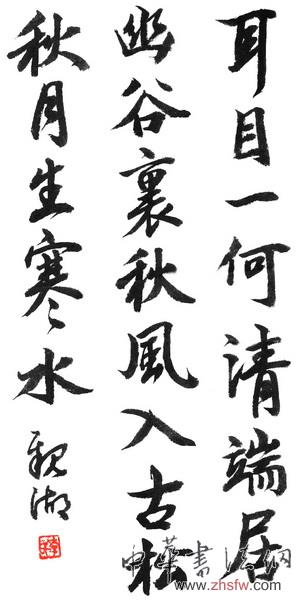 耳目一何清端居
幽谷裏秋風入古松
秋月生寒水
湖
中華書法網
www.zhsfw.com